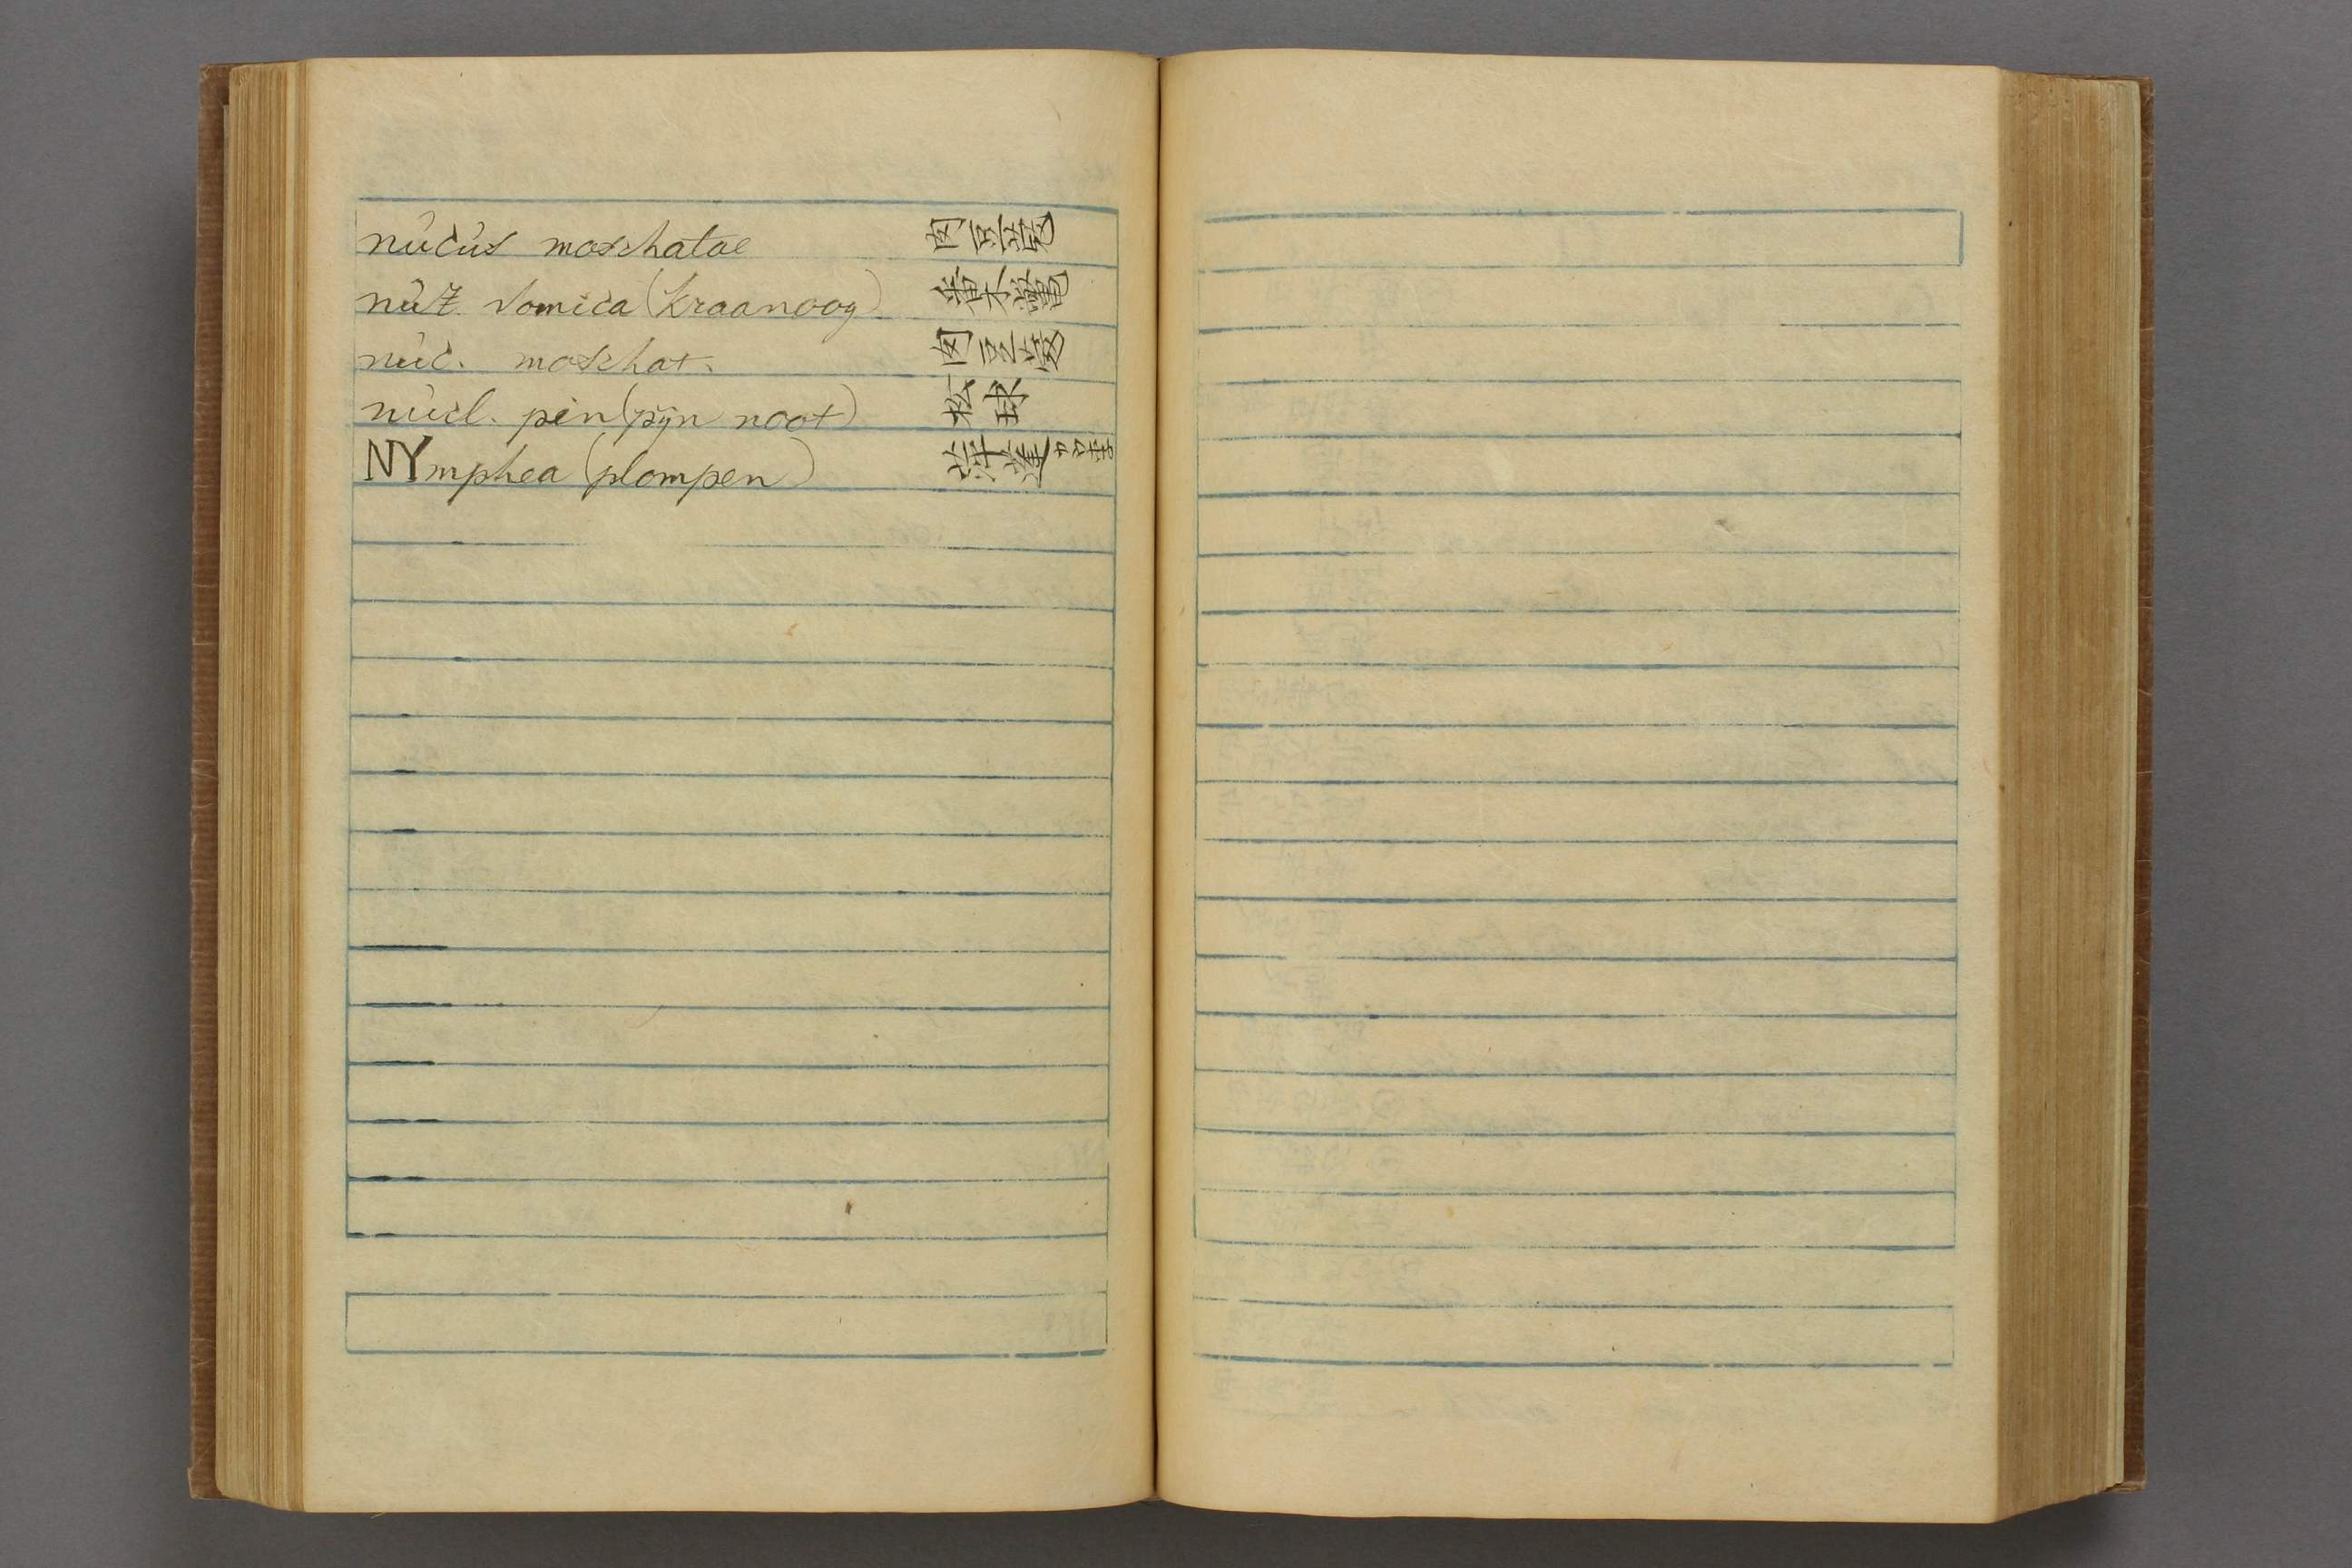 nucus moschatae 肉豆蔲
nux vomica (kraanoog) 番木鼈
nuc. moschat. 肉豆蔲
nucl. pin (pijn noot) 松球
NYmphea (plompen) 萍蓬